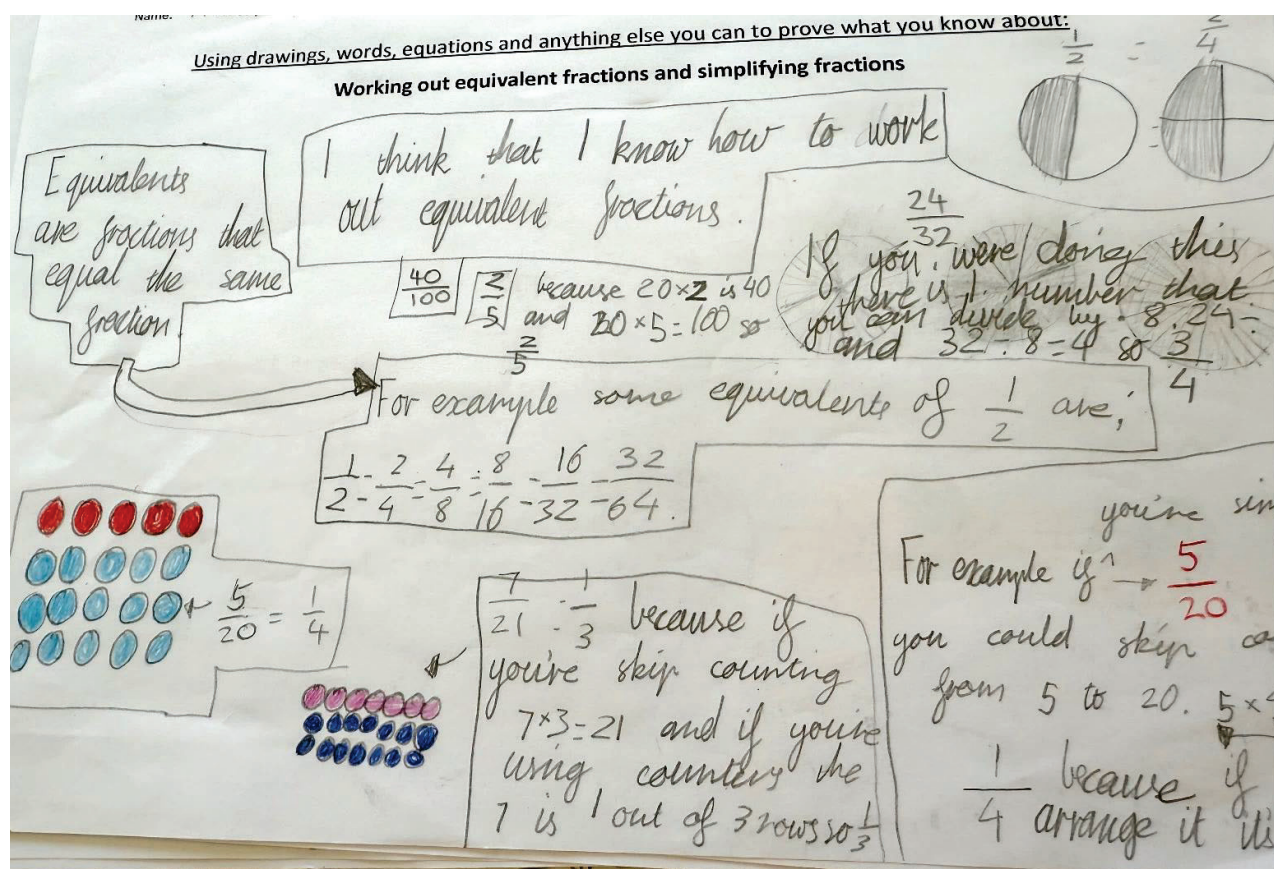 Name:
Using drawings, words, equations and anything else you can to prove what you know about:
Working out equivalent fractions and simplifying fractions
1/2 = 2/4
=
Equivalents
are fractions that
equal the same
fraction.
I think that I know how to work
out equivalent fractions.
40/100 2/5 because 20×2 is 40
and 20×5=100 so
2/5
24/32
If you were doing this
there is 1 number that
you can divide by. 8. 24÷
and 32÷8=4 so 3/4
For example some equivalents of 1/2 are;
1/2 = 2/4 = 4/8 = 8/16 = 16/32 = 32/64.
5/20 = 1/4
7/21 = 1/3 because if
you're skip counting
7×3=21 and if you're
using counters the
7 is 1 out of 3 rows so 1/3
you're sim
For example if ^ → 5/20
you could skip co
from 5 to 20. 5×4
1/4 because if
arrange it it's